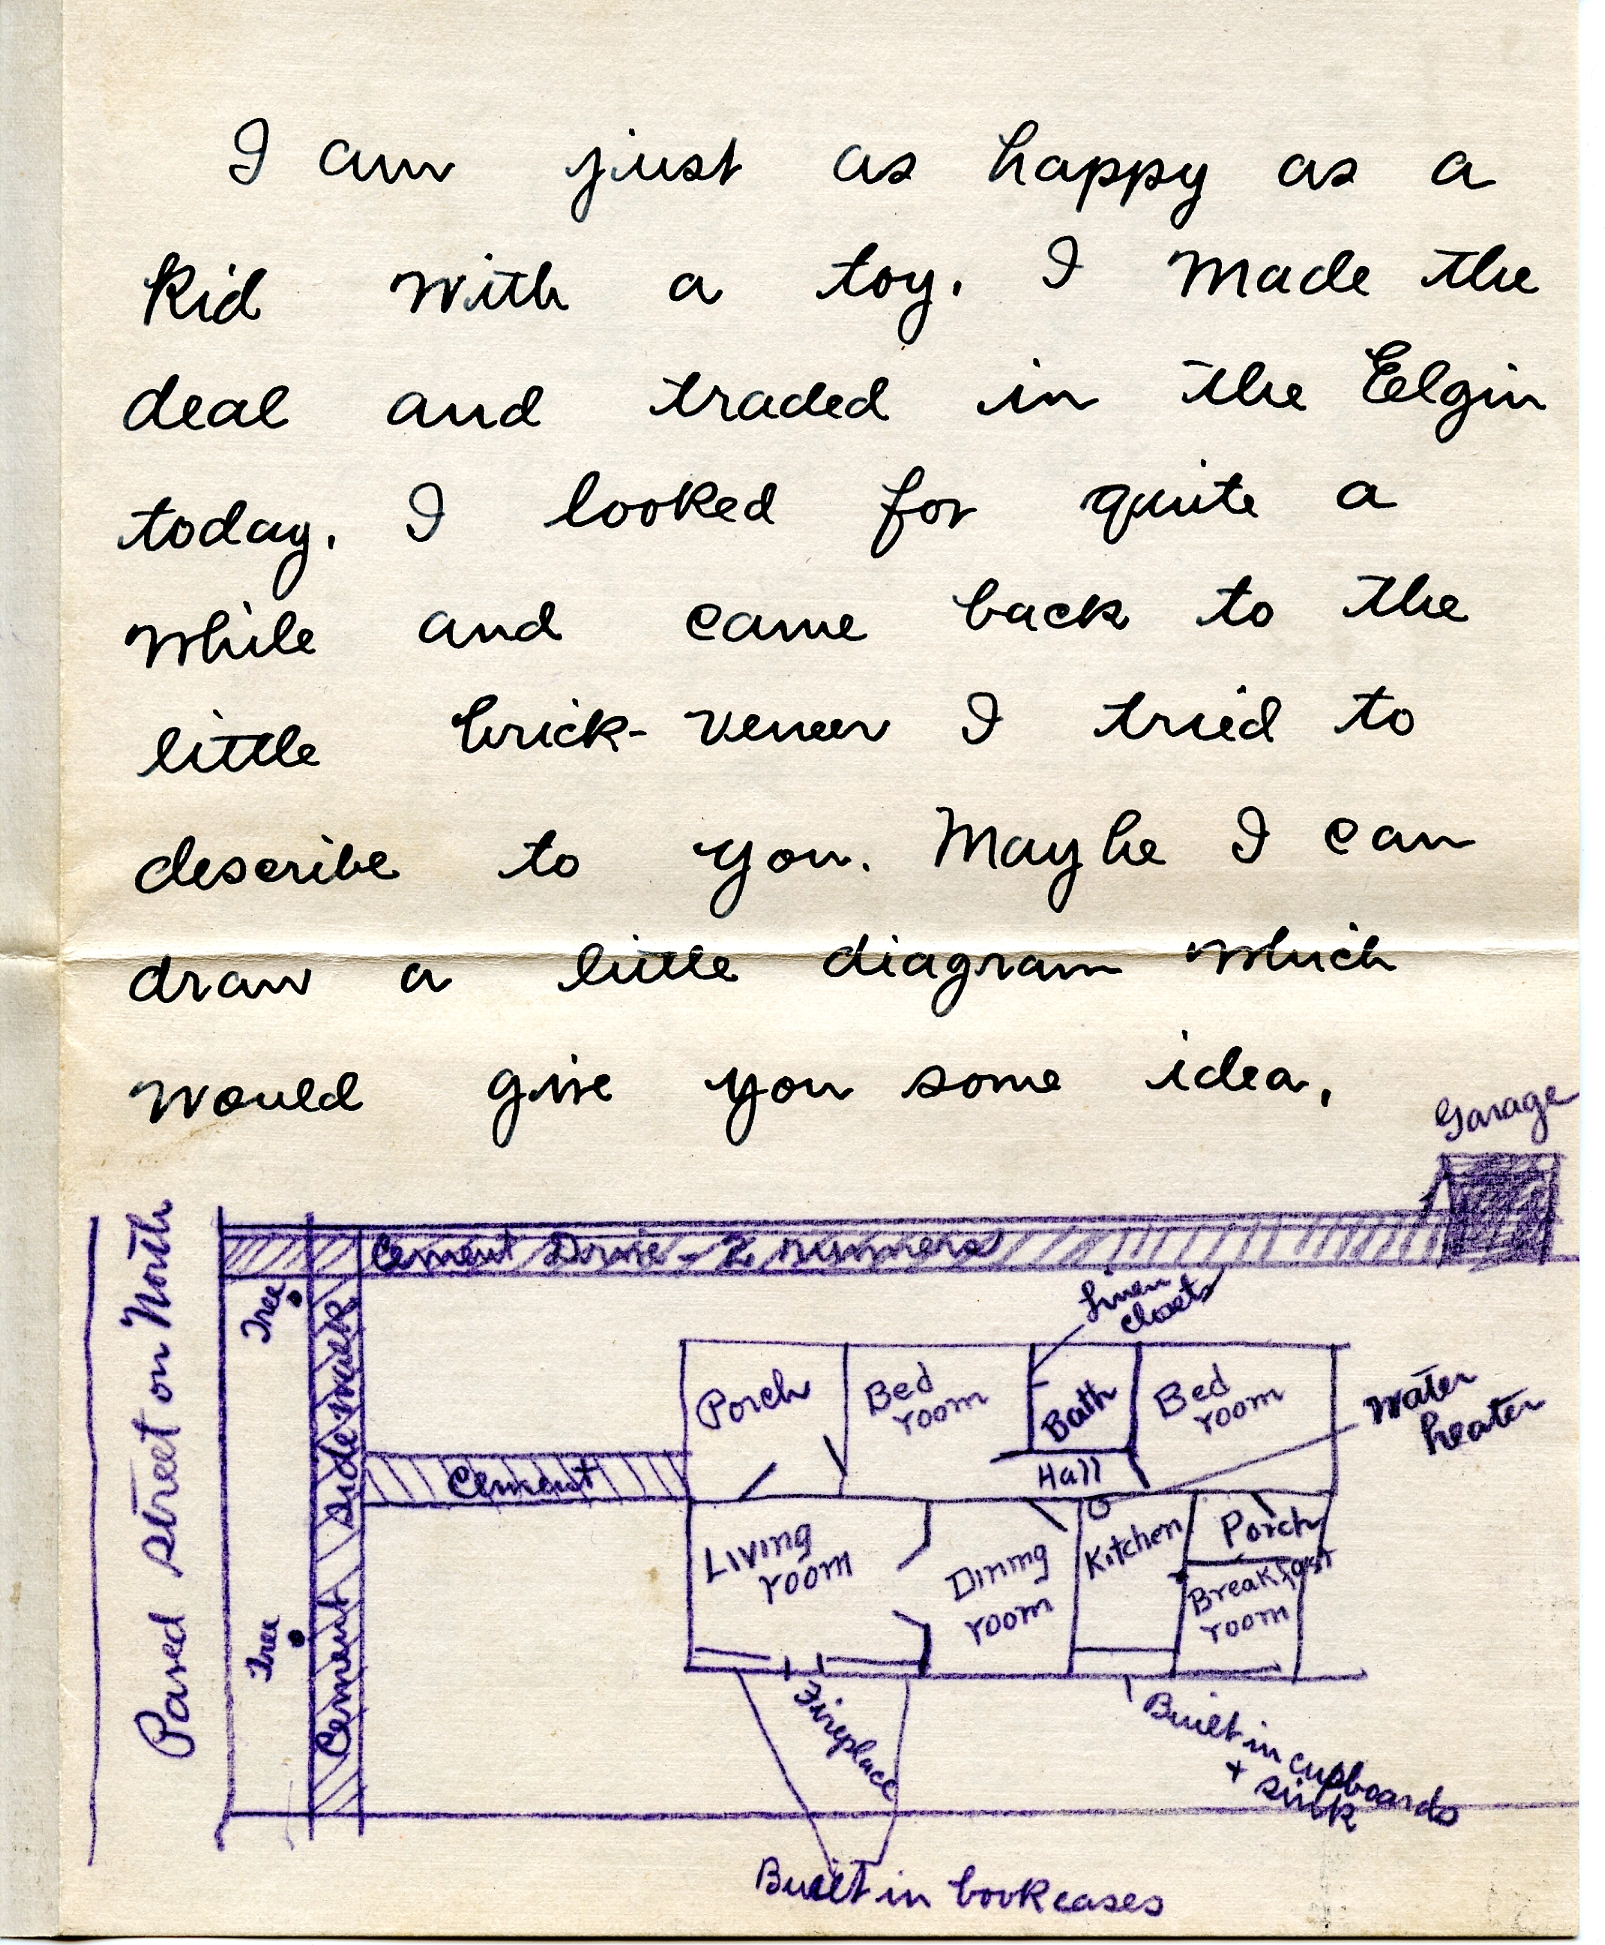 I am just as happy as a
kid with a toy. I made the
deal and traded in the Elgin
today. I looked for quite a
while and came back to the
little brick-veneer I tried to
describe to you. Maybe I can
draw a little diagram which
would give you some idea.
Garage
Paved street on North
Cement Drive - 2 runners
Tree
Tree
Cement sidewalk
Cement
Linen
closets
Porch
Bed
room
Bath
Bed
room
Water
heater
Hall
Living
room
Dining
room
Kitchen
Porch
Breakfast
room
Fireplace
Built in cupboards
+ sink
Built in bookcases